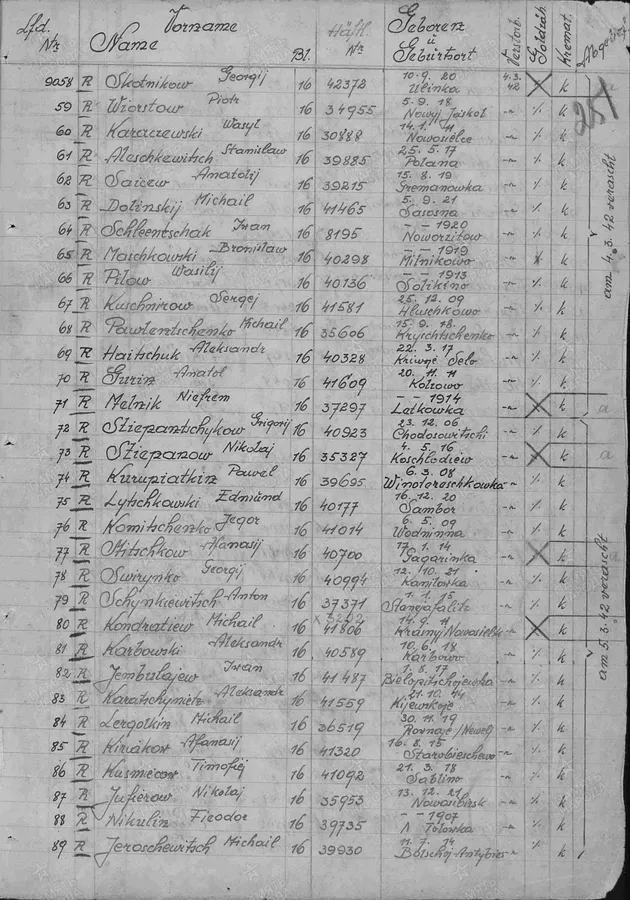 Lfd. Nr Vorzame Name Bl. Häftl. Nr Geboren u Geburtsort Verstorb. Goldzäh. Kremat.
251
9058 R Skotnikow Georgij 16 42372 10.9.20 Ulinka 4.3.42 X k
59 R Wiorstow Piotr 16 34955 5.9.18 Nowyj Jaskol -"- % k
60 R Karaczewski Wasyl 16 30888 14.1.11 Nowosielce -"- % k
61 R Aleschkewitsch Stanislaw 16 39885 25.5.17 Polana -"- % k
62 R Saicew Anatolij 16 39215 15.8.19 Gremanowka -"- % k
63 R Dolinskij Michail 16 41465 5.9.21 Sasosna -"- % k
64 R Schleentschak Iwan 16 8195 - - 1920 Noworzitow -"- % k
65 R Maschkowski Bronislaw 16 40298 - - 1919 Milnikowo -"- k
66 R Pilow Wasilij 16 40136 - - 1913 Solikino -"- % k
67 R Kuschnirow Sergej 16 41581 25.12.09 Hluschkowo -"- % k
68 R Pawlentschenko Michail 16 35606 15.9.18. Kryschtschenko -"- % k
69 R Haitschuk Aleksandr 16 40328 22.3.17 Kriwne Selo -"- % k
70 R Gurin Anatol 16 41609 20.11.11 Kolzowo -"- % k
71 R Melnik Niefrem 16 37297 - - 1914 Latkowka -"- X k a
72 R Stiepantschykow Grigorij 16 40923 23.12.06 Chodosowitschi -"- % k
73 R Stiepanow Nikolaj 16 35327 4.5.16 Koschlodziew -"- X k a
74 R Kurupiatkin Pawel 16 39695 6.3.08 Winotereschkowka -"- % k
75 R Lytschkowski Edmund 16 40177 16.12.20 Sambor -"- % k
76 R Komitschenko Jegor 16 41014 6.5.09 Wodninna -"- % k
77 R Stitschkow Afanasij 16 40700 17.1.14 Gagarinka -"- X k a
78 R Swirynko Georgij 16 40994 12.10.21 Kanitowka -"- % k
79 R Schynkiewitsch Anton 16 37371 1.1.15 -"- % k
80 R Kondratiew Michail 16 41806 14.9.11 Kramyj/Nowosielsk -"- X k
81 R Karbowski Aleksandr 16 40589 10.6.18 Karbowo -"- % k
82. R Jembulajew Iwan 16 41487 1.8.17 Bielopitschojewska -"- % k
83 R Karatschymietz Aleksandr 16 41559 21.10.14 Kijewskoje -"- % k
84 R Lergotkin Michail 16 36519 30.11.19 Rownoje/Newelj -"- % k
85 R Kiriakow Afanasij 16 41320 16.8.15 Starobieschewo -"- % k
86 R Kusmicow Timofej 16 41092 21.3.18 Sablino -"- % k
87 R Jufierow Nikolaj 16 35953 13.12.21 Nowosibirsk -"- % k
88 R Nikulin Fieodor 16 39735 - - 1907 Totowka -"- % k
89 R Jeroschewitsch Michail 16 39930 11.7.14 Bolschoj-Antybies -"- % k
am 4.3.42 verascht
am 5.3.42 verascht